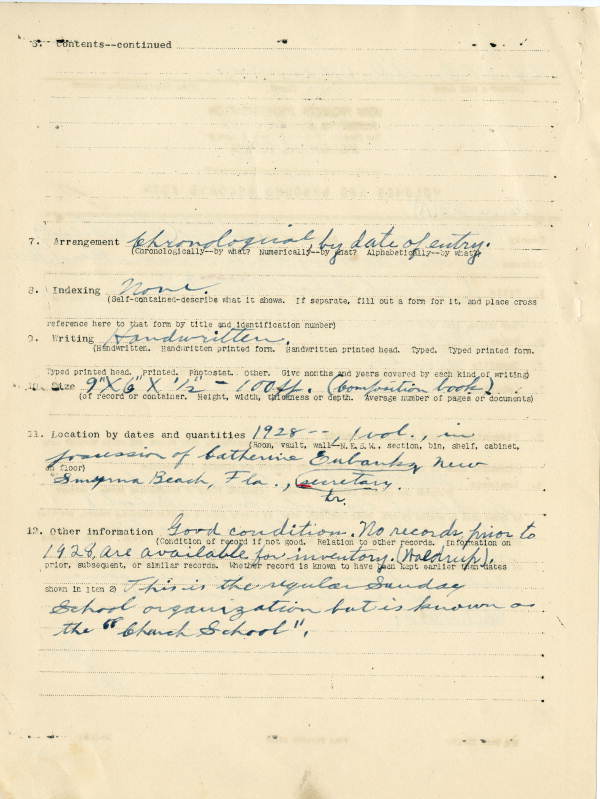 6. Contents--continued
7. Arrangement Chronological, by date of entry.
(Chronologically--by what? Numerically--by what? Alphabetically--by what?)
8. Indexing None.
(Self-contained-describe what it shows. If separate, fill out a form for it, and place cross
reference here to that form by title and identification number)
9. Writing Handwritten.
(Handwritten. Handwritten printed form. Handwritten printed head. Typed. Typed printed form.
Typed printed head. Printed. Photostat. Other. Give months and years covered by each kind of writing)
10. Size 9" X 6" X 1/2" - 100 pp. (Composition book)
(of record or container. Height, width, thickness or depth. Average number of pages or documents)
11. Location by dates and quantities 1928--, 1 vol., in
(Room, vault, wall--N.E.S.W., section, bin, shelf, cabinet,
possession of Catherine Eubanks, New
on floor)
Smyrna Beach, Fla., secretary.
tr.
12. Other information Good condition. No records prior to
(Condition of record if not good. Relation to other records. Information on
1928 are available for inventory. (Waldrup).
prior, subsequent, or similar records. Whether record is known to have been kept earlier than dates
shown in item 2) This is the regular Sunday
School organization but is known as
the "Church School".